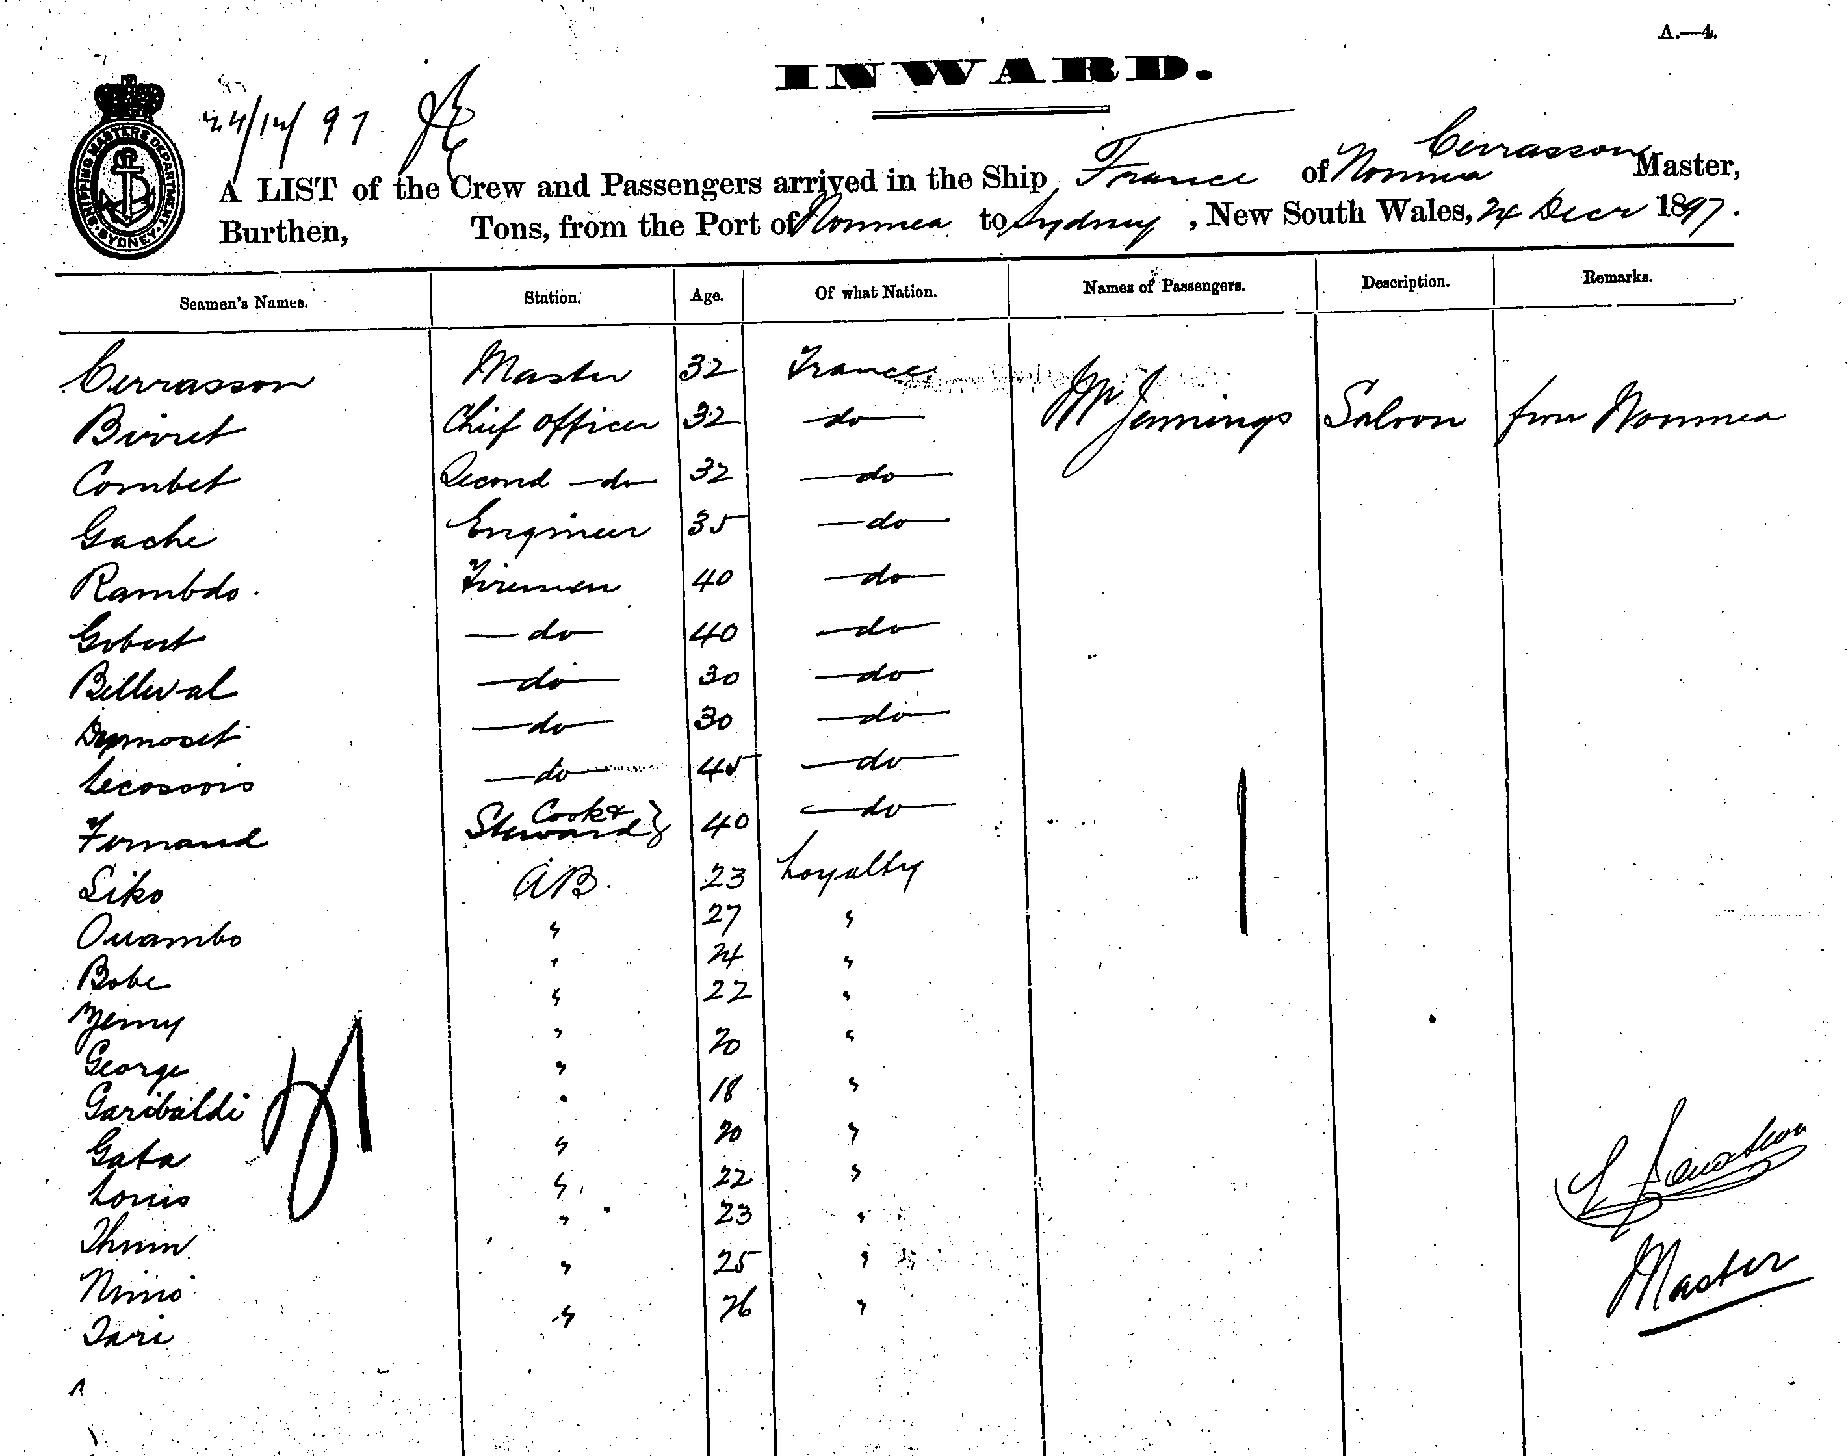 A.—4.
INWARD.
24/12/97
SHIPPING MASTERS DEPARTMENT SYDNEY
Cerrasson
A LIST of the Crew and Passengers arrived in the Ship France of Noumea Master,
Burthen, Tons, from the Port of Noumea to Sydney, New South Wales, 24 Decr 1897.
Seamen's Names. Station. Age. Of what Nation. Names of Passengers. Description. Remarks.
Cerrasson Master 32 France
Birret Chief Officer 32 —do— Mr Jennings Saloon from Noumea
Combet Second —do— 32 —do—
Gache Engineer 35 —do—
Rambdo. Firemen 40 —do—
Gobert —do— 40 —do—
Billeval —do— 30 —do—
—do— 30 —do—
Lecossois —do— 45 —do—
Fernand Cook & Steward } 40 —do—
Siko AB. 23 Loyalty
Ouambo " 27 "
Bobe " 24 "
Jemy " 22 "
George " 20 "
Garibaldi " 18 "
Gata " 20 "
Louis " 22 "
Thum " 23 "
Nimo " 25 "
Tari " 26 "
21
Master